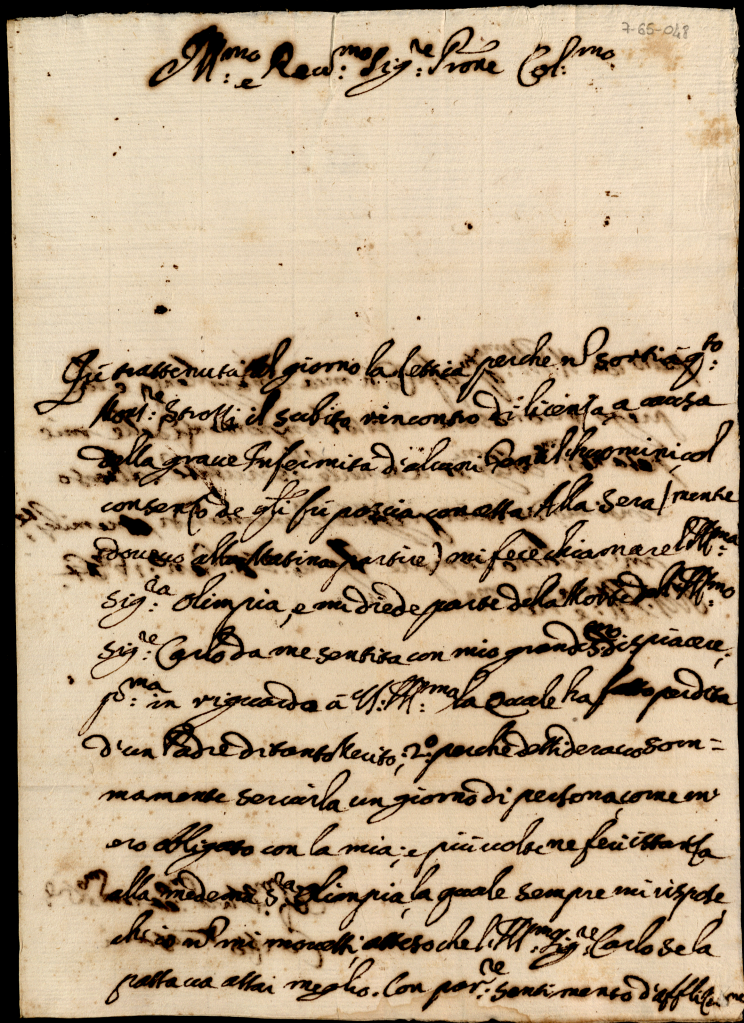 7-65-048
Ill:mo e Reu:mo Sig:re Prone Col:mo
Fù trattenuta il giorno la lettica perche nō sortì à q:to
Mons:re Strozzi il subito rincontro di licenza, a causa
della graue Infermità d'alcuni Gentilhuomini, col
consenso de q̃li fù poscia concessa. Alla sera / mentre
doueuo alla Matina partire) mi fece chiamare l'Ill:ma
Sig:ra Olimpia, e mi diede parte della Morte del Ill:mo
Sig:re Carlo da me sentita con mio grandis:mo dispiacere,
p:ma in riguardo à V:S: Ill:ma la Quale ha fatto perdita
d'un Padre di tanto Merito; 2.o perche desiderauo som=
mamente seruirla un giorno di persona, come m'
ero obligato con la mia; e più uolte ne feci istanza
alla medema S:ra Olimpia, la quale sempre mi rispose,
ch'io nō mi mouessi, atteso che l'Ill:mo Sig:re Carlo se la
passaua assai meglio. Con par:re sentimento d'afflizione